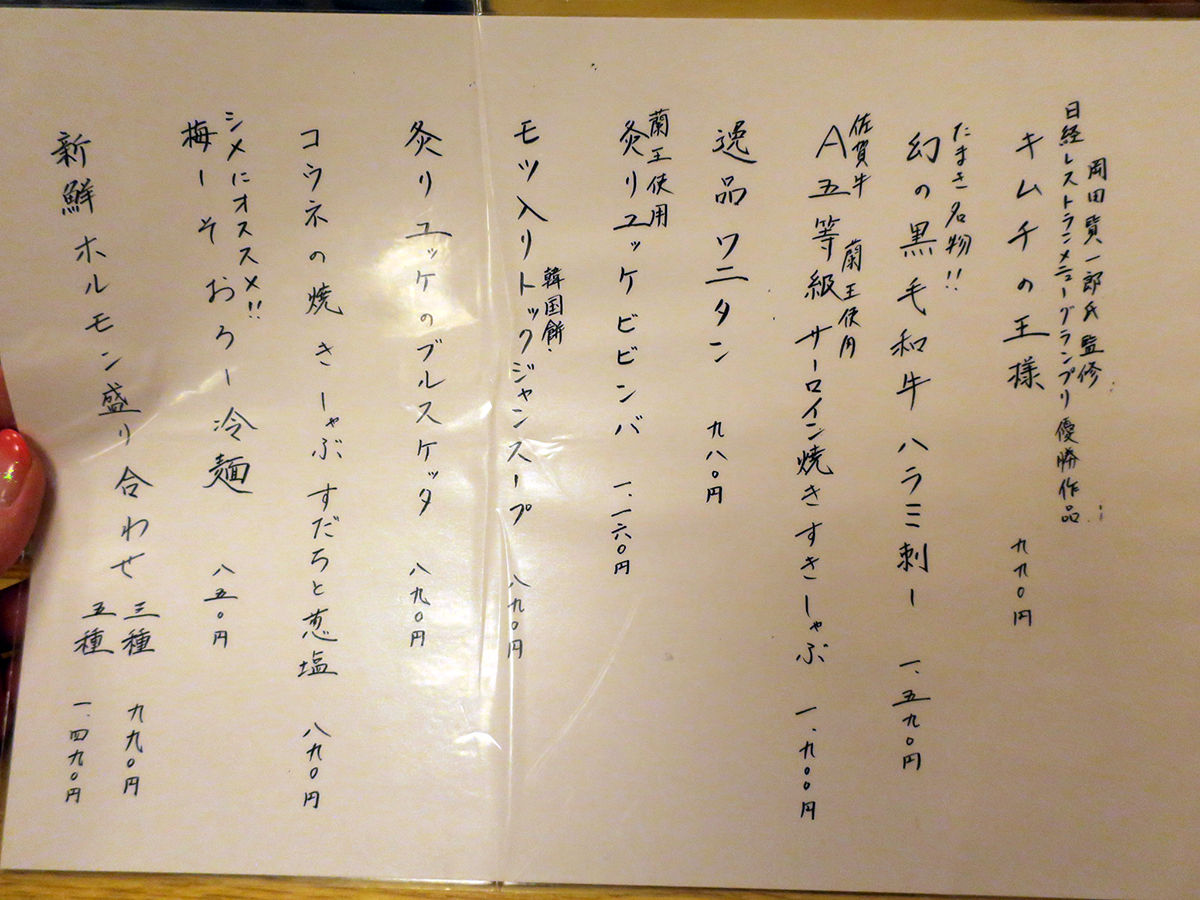 岡田賢一郎氏 監修
日経レストランメニューグランプリ優勝作品
キムチの王様 九九〇円
たまき名物!!
幻の黒毛和牛ハラミ刺し 一、五九〇円
佐賀牛 蘭王使用
A五等級サーロイン焼きすきしゃぶ 一、九〇〇円
逸品ワニタン 九八〇円
蘭王使用
炙りユッケビビンバ 一、一六〇円
韓国餅
モツ入りトックジャンスープ 八九〇円
炙りユッケのブルスケッタ 八九〇円
コウネの焼きしゃぶ すだちと葱塩 八九〇円
シメにオススメ!!
梅しそおろし冷麺 八五〇円
新鮮ホルモン盛り合わせ 三種 九九〇円
五種 一、四九〇円